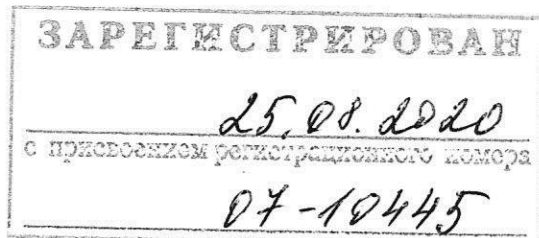 ЗАРЕГИСТРИРОВАН
25.08.2020
с присвоением регистрационного номера
07-10445